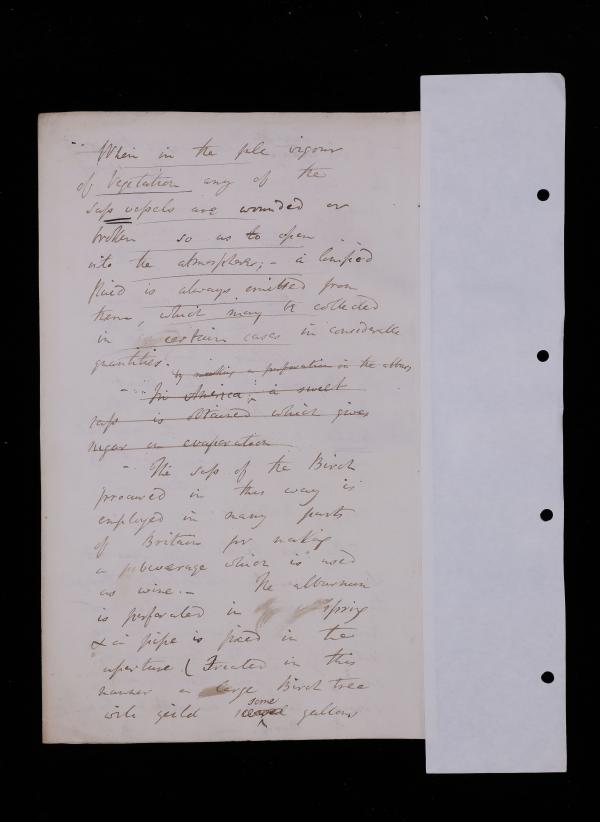 When in the full vigour
of Vegetation any of the
sap vessels are wounded or
broken so as to open
into the atmosphere; - a limpid
fluid is always emitted from
them, which may be collected
in certain cases in considerable
quantities.
by making a perforation in the alburn
In America; a sweet
sap is obtained which gives
sugar on evaporation
The sap of the Birch
procured in this way is
employed in many parts
of Britain for making
a beverage which is used
as wine. - The alburnum
is perforated in spring
& a pipe is fixed in the
aperture ( Treated in this
manner a large Birch tree
will yeild some gallons